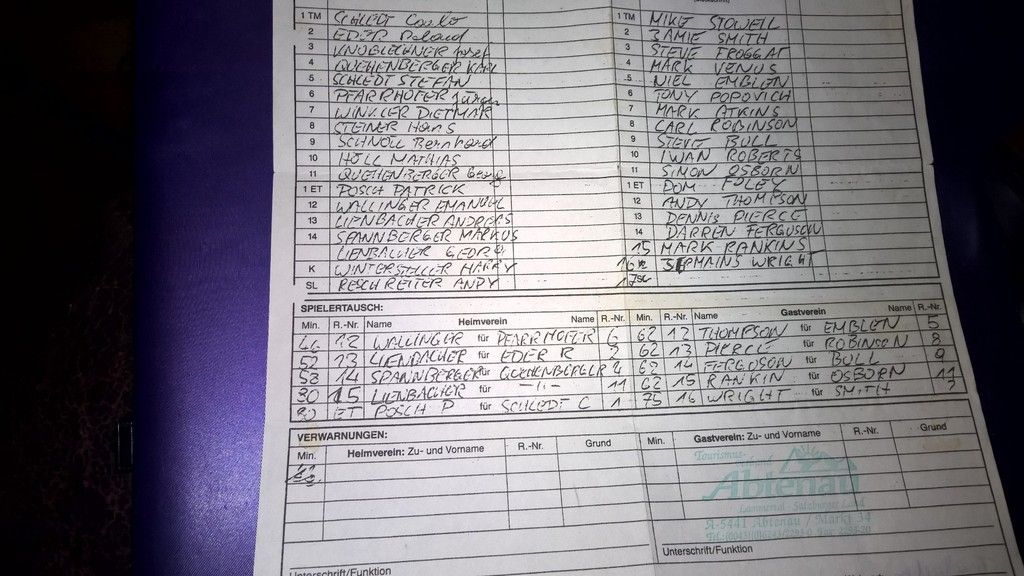 1 TM SCHLEDT 1 TM MIKE STOWELL
2 EDER Roland 2 JAMIE SMITH
3 3 STEVE FROGGAT
4 QUEHENBERGER KARL 4 MARK VENUS
5 SCHLEDT STEFAN 5 NIEL EMBLEN
6 PFARRHOFER Jürgen 6 TONY POPOVICH
7 WINKLER DIETMAR 7 MARK ATKINS
8 STEINER Hans 8 CARL ROBINSON
9 SCHNÖLL Bernhard 9 STEVE BULL
10 HÖLL MATHIAS 10 IWAN ROBERTS
11 QUEHENBERGER Georg 11 SIMON OSBORN
1 ET POSCH PATRICK 1 ET DOM FOLEY
12 WALLINGER EMANUEL 12 ANDY THOMPSON
13 LIENBACHER ANDREAS 13 DENNIS PIERCE
14 SPANNBERGER MARKUS 14 DARREN FERGUSON
LIENBACHER GEORG 15 MARK RANKINS
K WINTERSTELLER HARRY 16 JERMAINS WRIGHT
SL RESCHREITER ANDY
SPIELERTAUSCH:
Min. R.-Nr. Name Heimverein Name R.-Nr. Min. R.-Nr. Name Gastverein Name R.-Nr.
46 12 WALLINGER für PFARRHOFER 6 62 12 THOMPSON für EMBLEN 5
52 13 LIENBACHER für EDER R 2 62 13 PIERCE für ROBINSON 8
58 14 SPANNBERGER für QUEHENBERGER 4 62 14 FERGUSON für BULL 9
80 15 LIENBACHER für -"- 11 62 15 RANKIN für OSBORN 11
80 ET POSCH P für SCHLEDT C 1 75 16 WRIGHT für SMITH 2
VERWARNUNGEN:
Min. Heimverein: Zu- und Vorname R.-Nr. Grund Min. Gastverein: Zu- und Vorname R.-Nr. Grund
Tourismus-
Abtenau
Lammertal - Salzburger Land
A-5441 Abtenau / Markt 34
Unterschrift/Funktion Unterschrift/Funktion